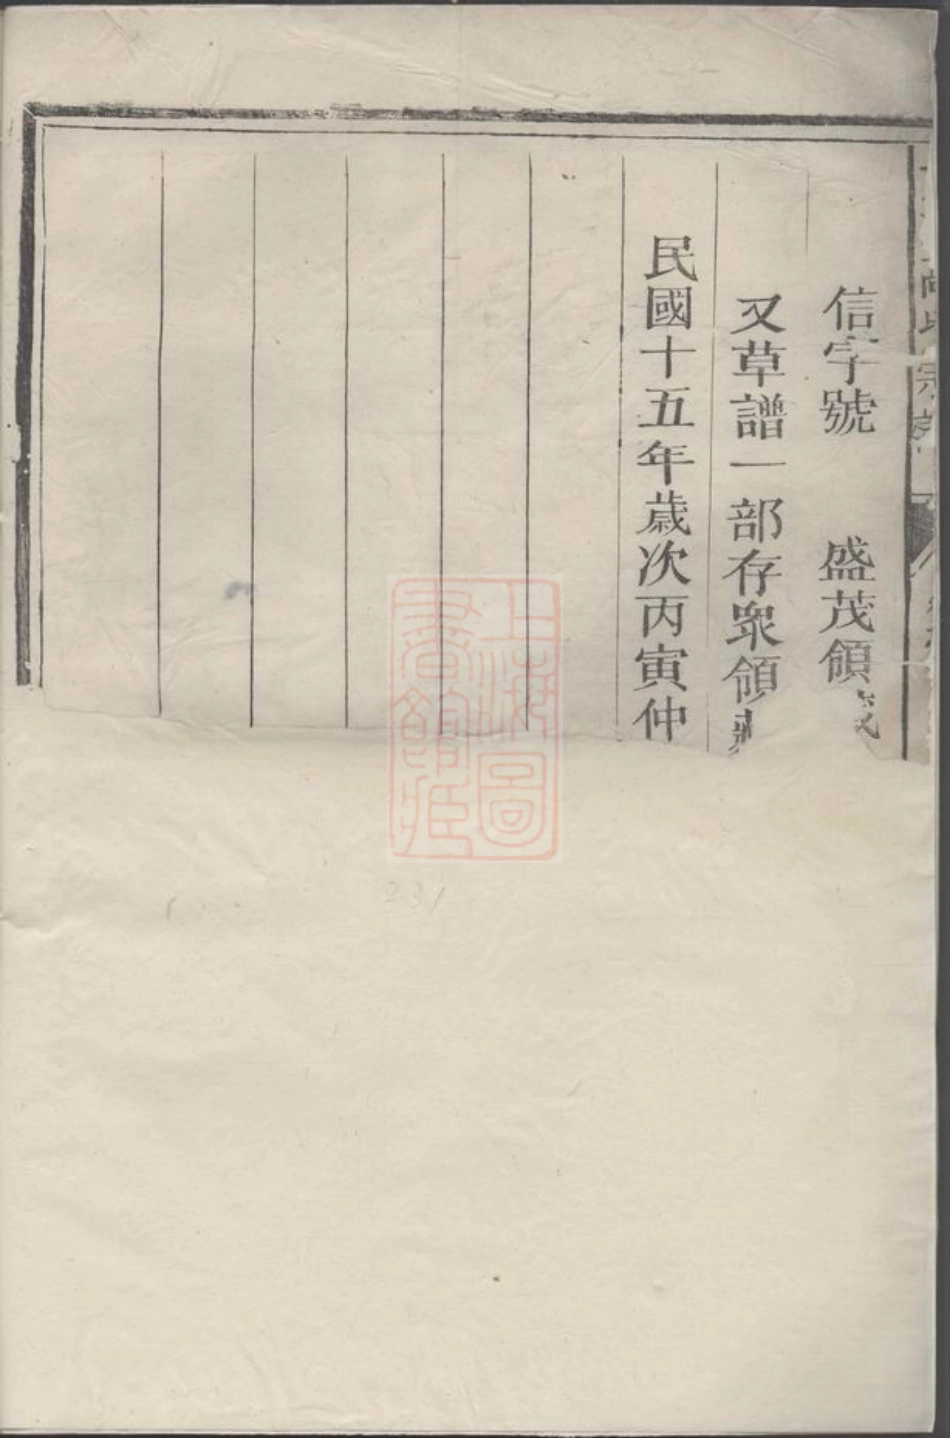 信字號 盛茂領
又草譜一部存衆領
民國十五年歲次丙寅仲
上海圖書館藏
231